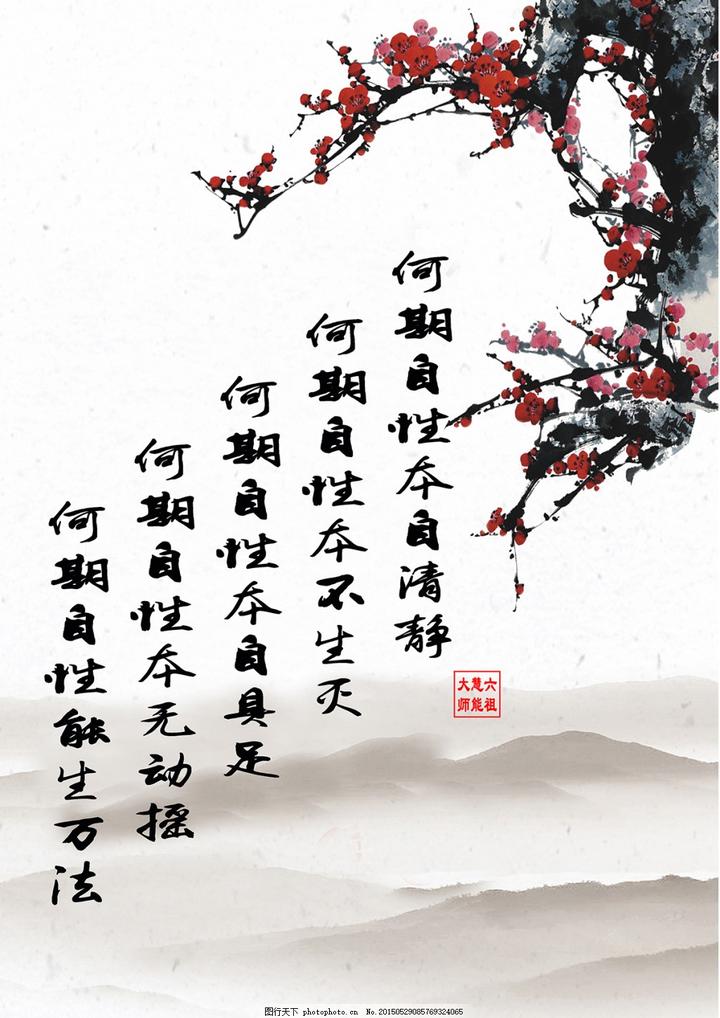 何期自性本自清静
何期自性本不生灭
何期自性本自具足
何期自性本无动摇
何期自性能生万法
六祖
慧能
大师
图行天下 photophoto.cn No.20150529085769324065